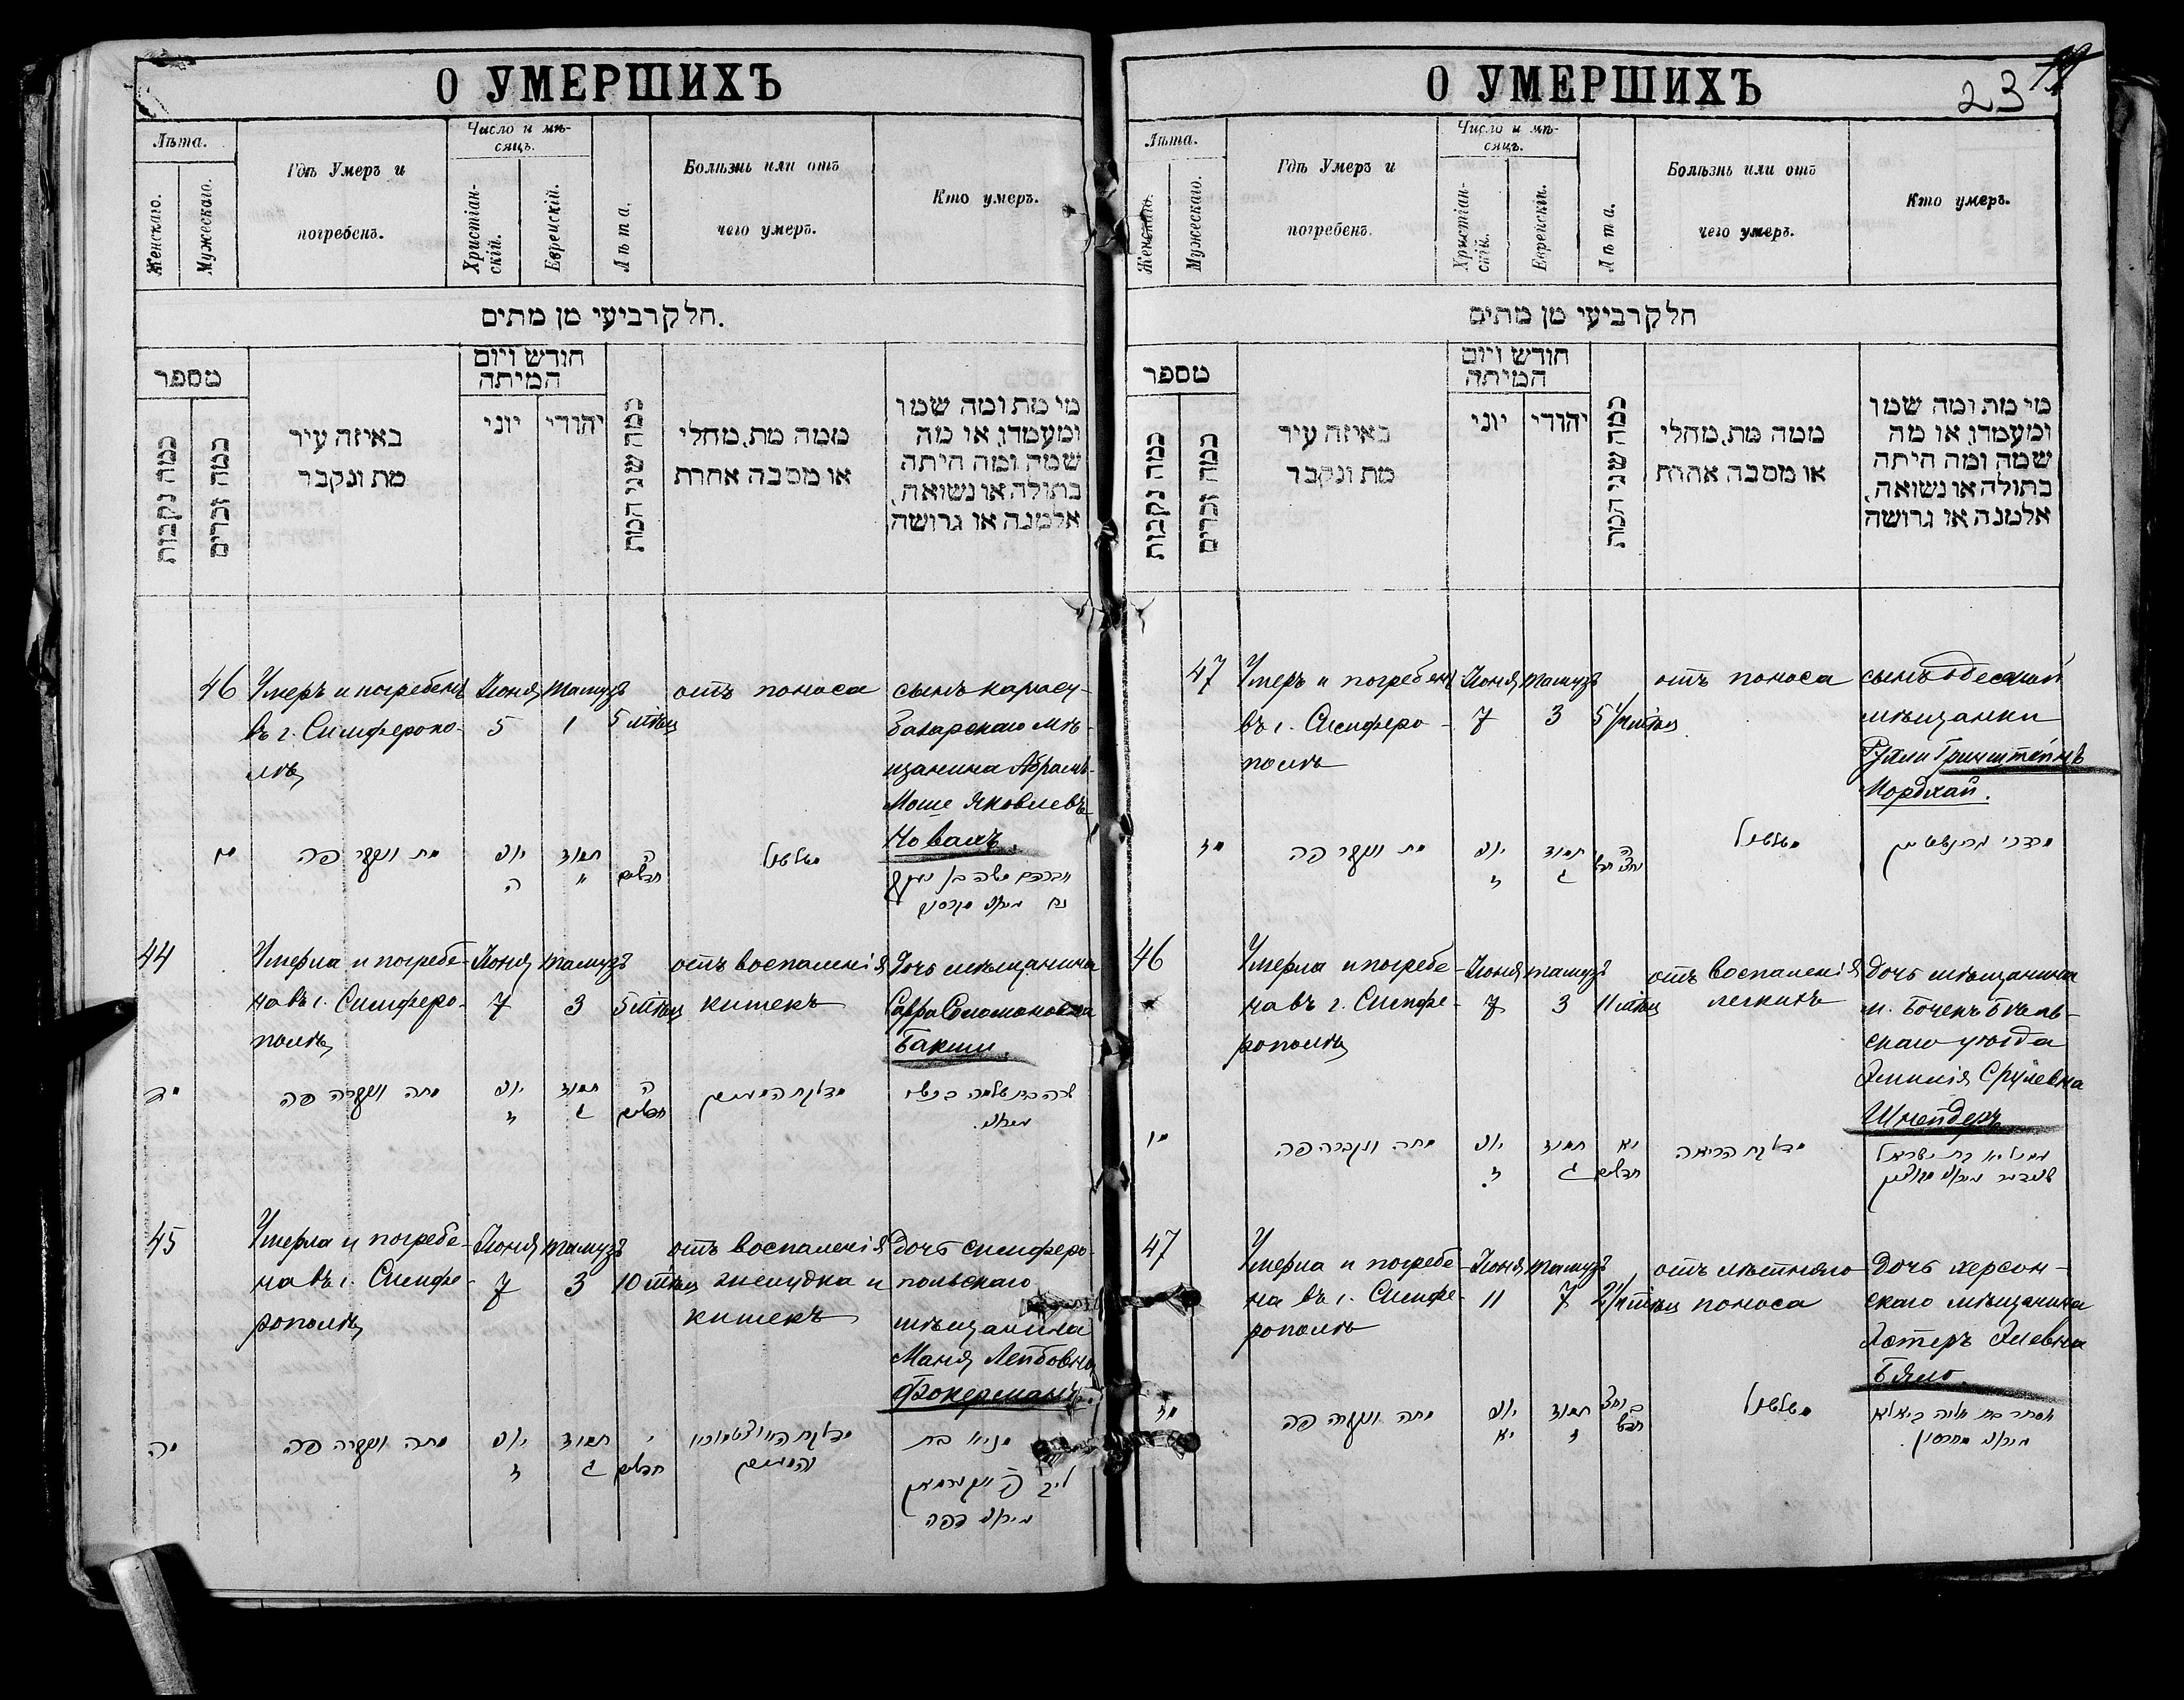 О УМЕРШИХЪ
Лѣта.
Женскаго.
Мужескаго.
Гдѣ Умеръ и
погребенъ.
Число и мѣ-
сяцъ.
Христіан-
скій.
Еврейскій.
Лѣта.
Болѣзнь или отъ
чего умеръ.
Кто умеръ.
חלק רביעי מן מתים.
מספר
כמה נקבות
כמה זכרים
באיזה עיר
מת ונקבר
חודש ויום
המיתה
יוני
יהודי
כמה שני המת
ממה מת, מחלי
או מסבה אחרת
מי מת ומה שמו
ומעמדו, או מה
שמה ומה היתה
בתולה או נשואה,
אלמנה או גרושה
46
Умеръ и погребенъ
въ г. Симферопо-
лѣ
Іюня
5
тамузъ
1
5 мѣсяц
отъ поноса
сынъ карасу-
базарскаго мѣ-
щанина Абрамъ-
Моше Яковлевъ
Новакъ.
מו
מת ונקבר פה
יוני
ה
תמוז
ה
חדשים
משלשול
44
Умерла и погребе-
на въ г. Симферо-
полѣ
Іюня
7
тамузъ
3
5 мѣсяц
отъ воспаленія
кишекъ
Дочь мѣщанина
Сарра Соломоновна
Бакши.
מד
מתה ונקברה פה
יוני
ז
תמוז
ג
ה
חדשים
מדלקת המעים
שרה בת שלמה בקשי
45
Умерла и погребе-
на въ г. Симфе-
рополѣ
Іюня
7
тамузъ
3
10 мѣсяц
отъ воспаленія
желудка и
кишекъ
Дочь симферо-
польскаго
мѣщанина
Маня Лейбовна
Фокерманъ.
מה
מתה ונקברה פה
יוני
ז
תמוז
ג
י
חדשים
והמעים
מניא בת
ליב
פה
О УМЕРШИХЪ
23
Лѣта.
Женскаго.
Мужескаго.
Гдѣ Умеръ и
погребенъ.
Число и мѣ-
сяцъ.
Христіан-
скій.
Еврейскій.
Лѣта.
Болѣзнь или отъ
чего умеръ.
Кто умеръ.
חלק רביעי מן מתים
מספר
כמה נקבות
כמה זכרים
באיזה עיר
מת ונקבר
חודש ויום
המיתה
יוני
יהודי
כמה שני המת
ממה מת, מחלי
או מסבה אחרת
מי מת ומה שמו
ומעמדו, או מה
שמה ומה היתה
בתולה או נשואה,
אלמנה או גרושה
47
Умеръ и погребенъ
въ г. Симферо-
полѣ
Іюня
7
тамузъ
3
5½ мѣсяц
отъ поноса
сынъ одесской
мѣщанки
Рухли Гринштейнъ
Мордхай.
מז
מת ונקבר פה
יוני
ז
תמוז
ג
ה
משלשול
מרדכי גרינשטיין
46
Умерла и погребе-
на въ г. Симфе-
рополѣ
Іюня
7
тамузъ
3
11 мѣсяц
отъ воспаленія
легкихъ
Дочь мѣщанина
скаго уѣзда
Эмилія Срулевна
Шнейдеръ
מו
מתה ונקברה פה
יוני
ז
תמוז
ג
יא
חדשים
מדלקת הריאה
בת ישראל
שניידער
47
Умерла и погребе-
на въ г. Симфе-
рополѣ
Іюня
11
тамузъ
7
2½ мѣсяц
отъ лѣтняго
поноса
Дочь херсон-
скаго мѣщанина
Эстеръ Элевна
Бяло.
מז
מתה ונקברה פה
יוני
יא
תמוז
ז
משלשול
אסתר בת אליה ביאלא